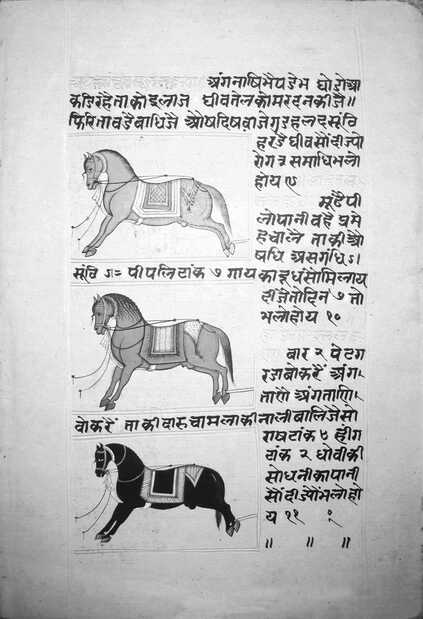 अंगनाषिभैषडेभ घोडोआ
कडिरहैताकोइलाज घीवतेलकोमरदनकीजै॥
फिरितावडैबाधिजै औषदिषवाजेगुडहलदसूंठि
हरडैघीवसौंदीजपो
रोग उसमाधिभलो
होय ९
मूडैपी
लोपानीवहै घूमे
हचालै ताकीऔ
षधि असगंधि ऽ।
सूंठि ऽ= पीपलिटांक ७ गायकादूधसोमिलाय
दीजैतोदिन ७ तो
भलोहोय १०
बार २ पेटग
रडाबोकरैं अंग-
ताणै अंगताणि
वोकरैं ताकीदारुचामलाकीनालीबालिजैसो
राषटांक ५ हींग
टांक २ धोवीकी
सोधनीकापानी
सौंदीजोभलोहो
य ११
॥ ॥ ॥